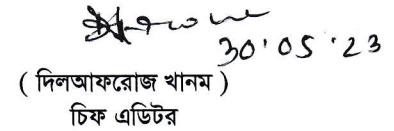 30.05.23
( দিলআফরোজ খানম )
চিফ এডিটর